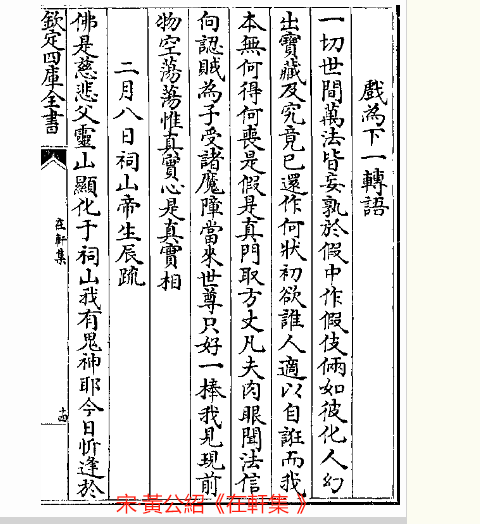 戲為下一轉語
一切世間萬法皆妄孰於假中作假伎倆如彼化人幻
出寶藏及究竟已還作何狀初欲誰人適以自誑而我
本無何得何喪是假是真門取方丈凡夫肉眼聞法信
向認賊為子受諸魔障當來世尊只好一棒我見現前
物空蕩蕩惟真實心是真實相
二月八日祠山帝生辰疏
佛是慈悲父靈山顯化于祠山我有鬼神耶今日忻逢於
欽定四庫全書
在軒集
十四
宋·黃公紹《在軒集 》